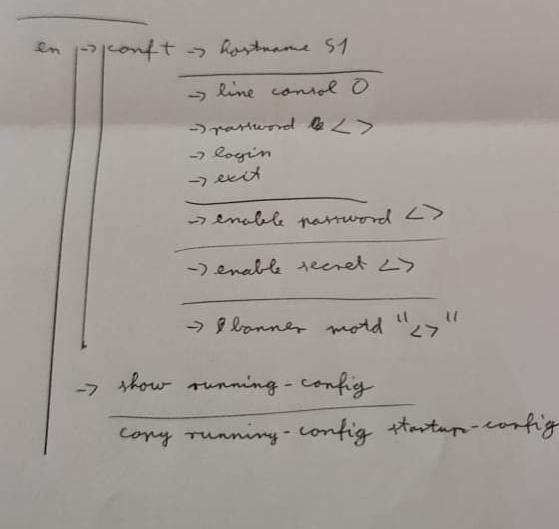 en → conf t → hostname S1
→ line consol 0
→ password <>
→ login
→ exit
→ enable password <>
→ enable secret <>
→ banner motd "<>"
→ show running-config
copy running-config startup-config